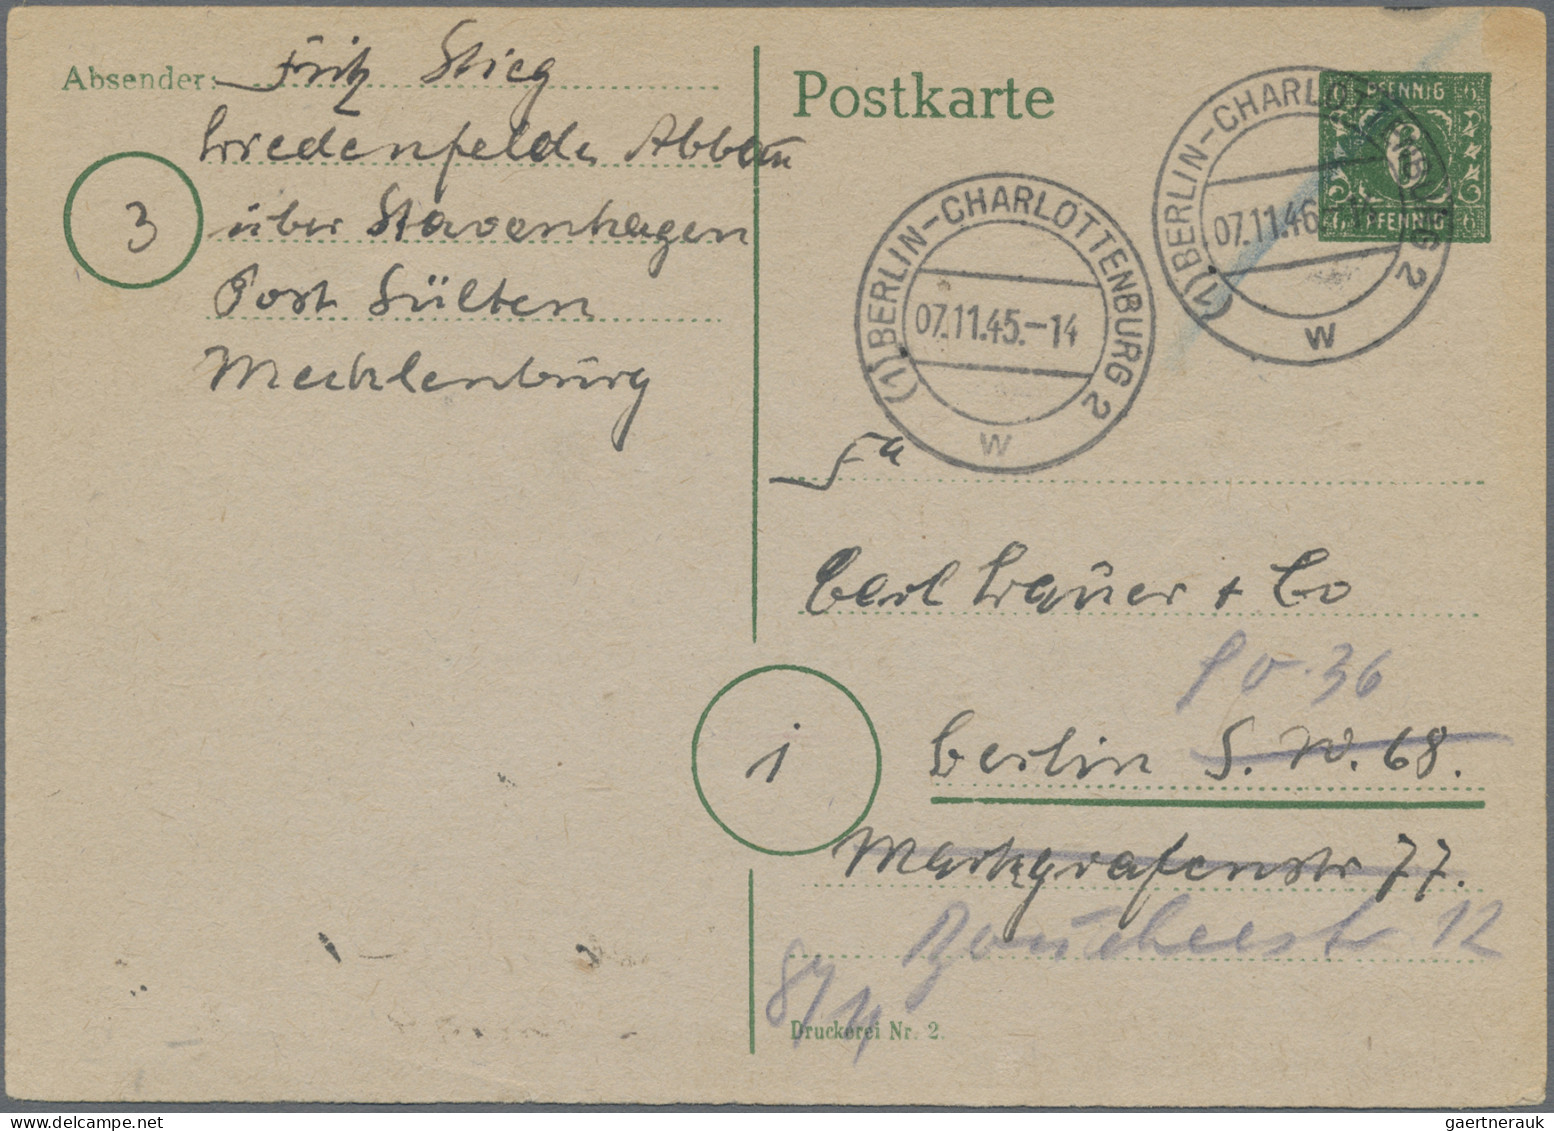 Absender: Fritz Stieg
Wiedenfelde Abbau
3
über Stavenhagen
Post Sülten
Mecklenburg
Postkarte
PFENNIG
6
PFENNIG
(1) BERLIN-CHARLOTTENBURG 2
07.11.46
W
(1) BERLIN-CHARLOTTENBURG 2
07.11.45.-14
W
Fa
Carl Lauer + Co
36
1
Berlin S.W. 68.
Markgrafenstr 77.
Bouchéestr 12
Druckerei Nr. 2.
gaertnerauk